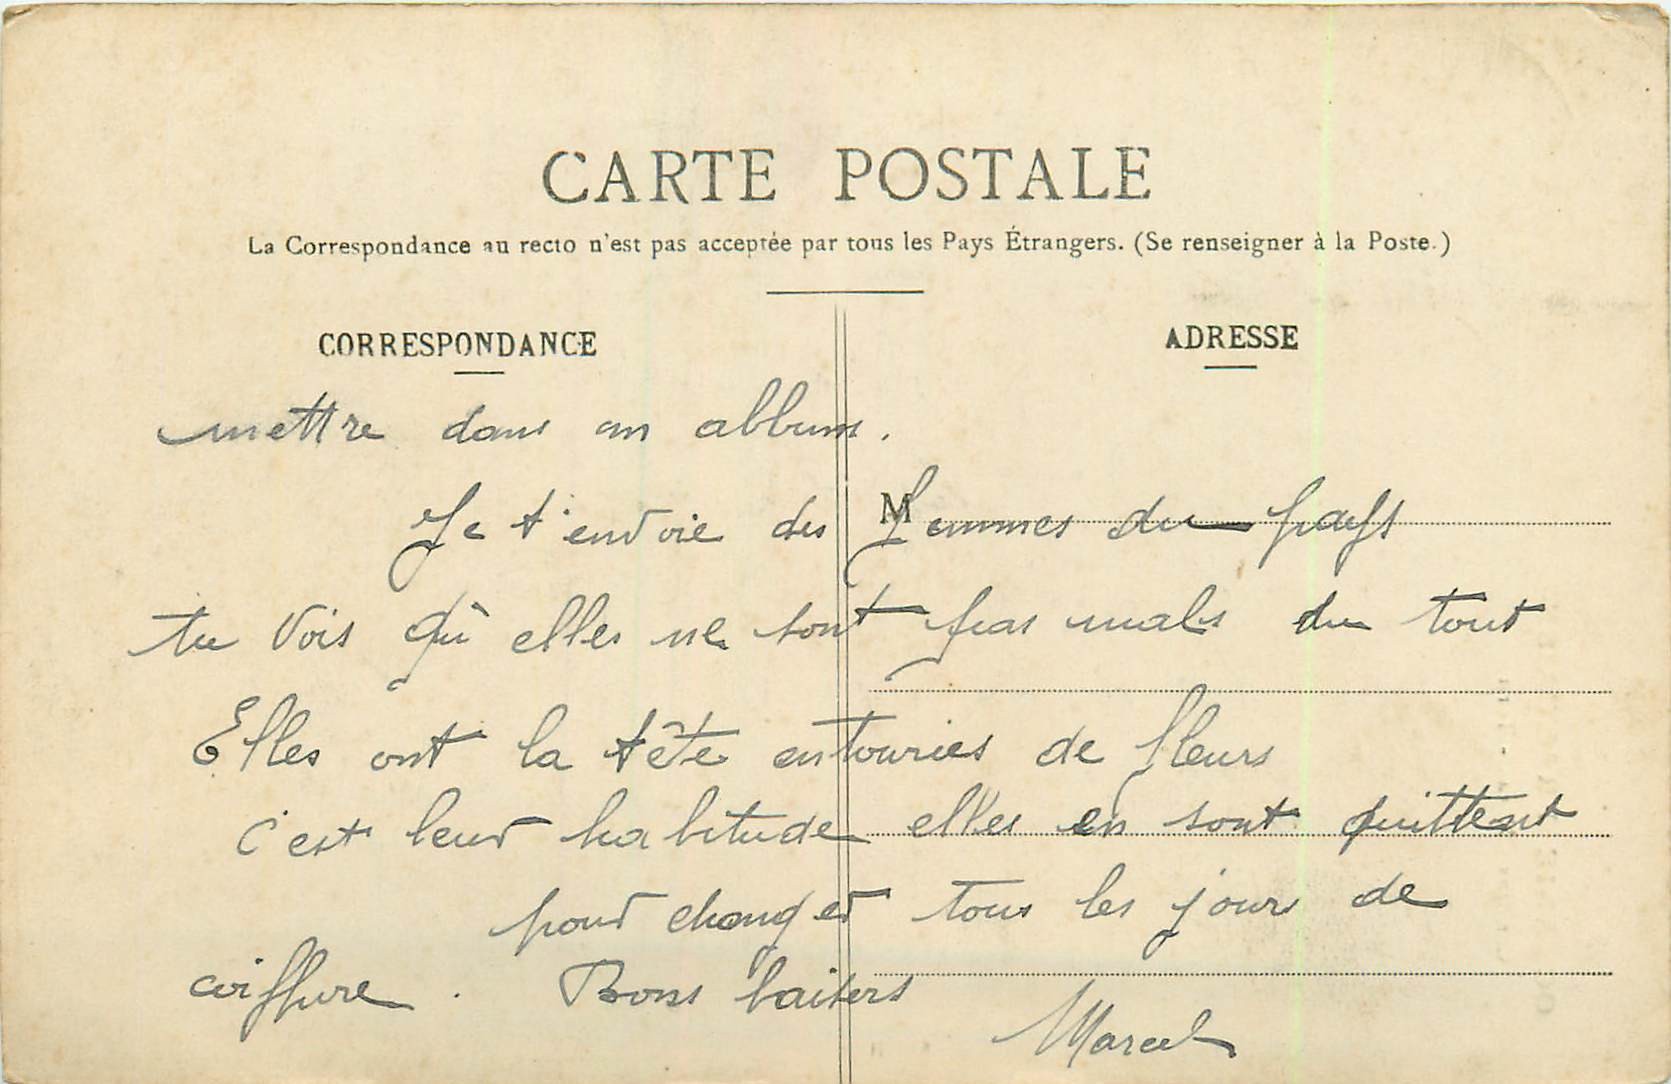 CARTE POSTALE
La Correspondance au recto n'est pas acceptée par tous les Pays Étrangers. (Se renseigner à la Poste.)
CORRESPONDANCE
ADRESSE
M
mettre dans un album.
Je t'envoie des femmes du pays
tu vois qu'elles ne sont pas mals du tout
Elles ont la tête entouries de fleurs
c'est leur habitude elles en sont quittent
pour changer tous les jours de
coiffure. Bons baisers
Marcel